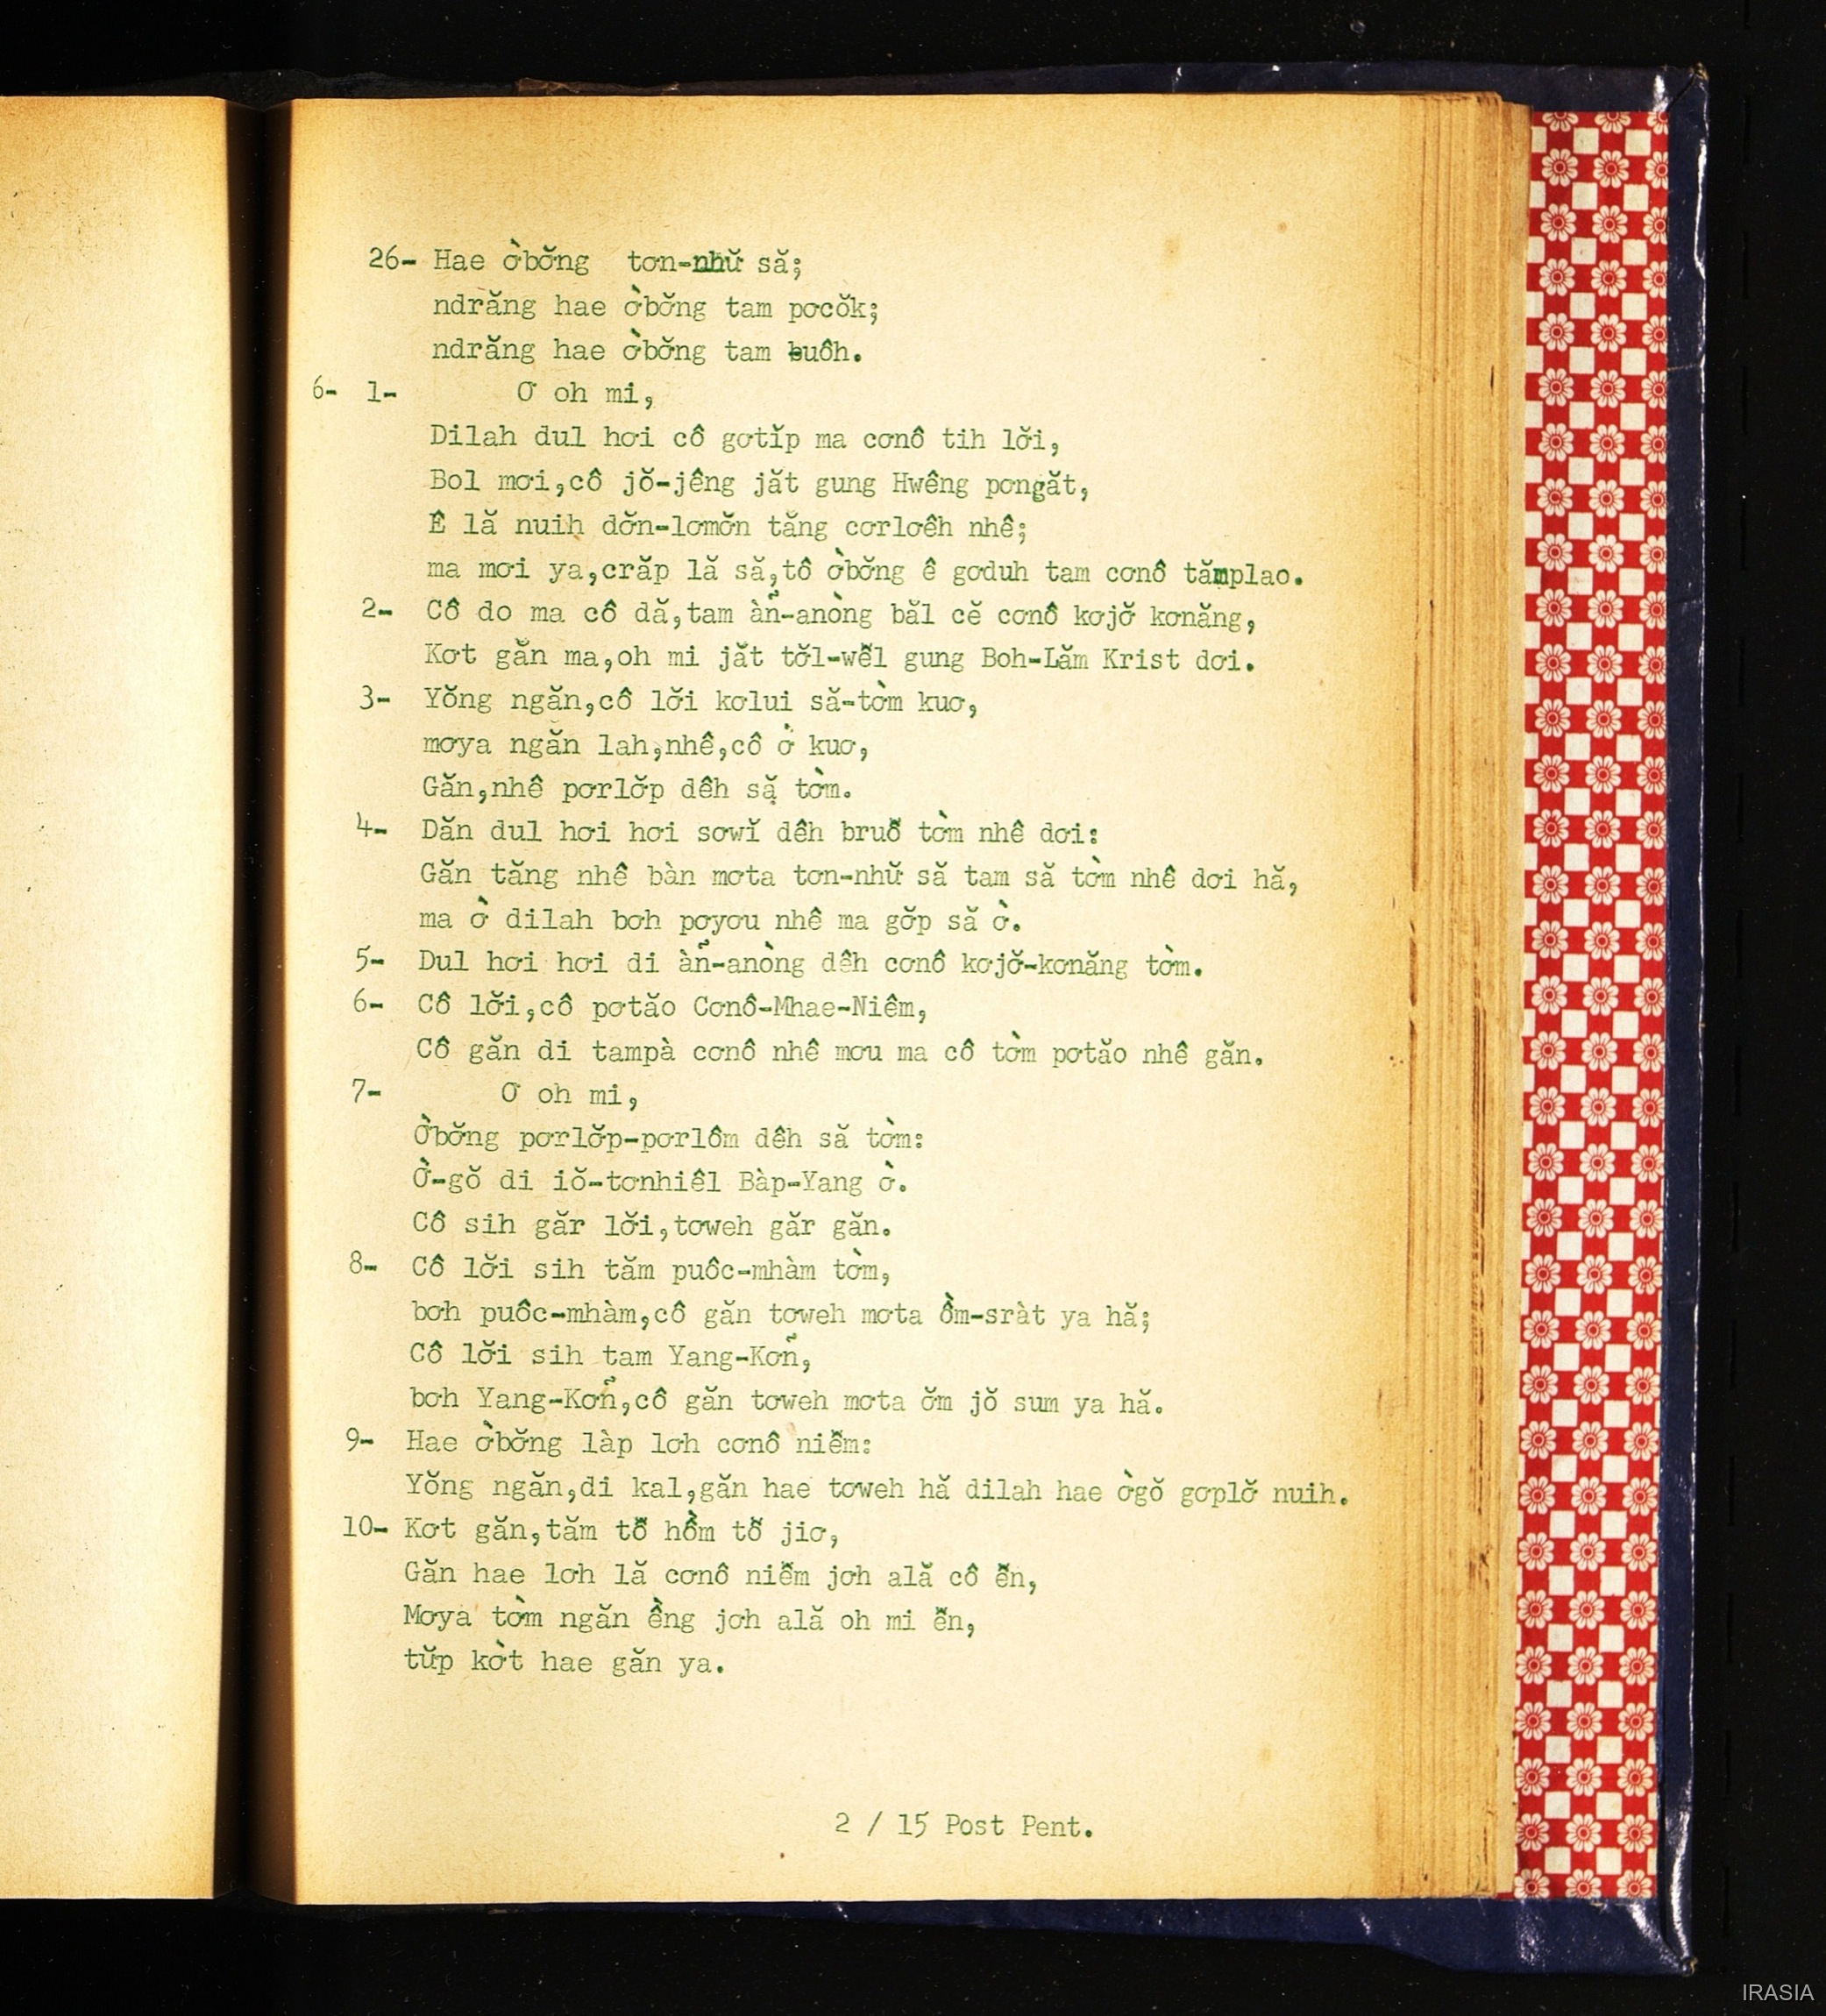 26- Hae ờbỡng tơn-nhữ să;
ndrăng hae ờbỡng tam pơcŏk;
ndrăng hae ờbỡng tam ƀuôh.
6- 1- Ơ oh mi,
Dilah dul hơi cô gơtĭp ma cơnô tih lơ̆i,
Bol mơi,cô jŏ-jêng jăt gung Hwêng pơngăt,
Ê lă nuih dơ̆n-lơmơ̆n tăng cơrlơêh nhê;
ma mơi ya,crăp lă să,tô ờbơ̆ng ê gơduh tam cơnô tămplao.
2- Cô do ma cô dă,tam àn̉-anòng băl cĕ cơnô kơjơ̆ kơnăng,
Kơt găn ma,oh mi jăt tơ̆l-wê̆l gung Boh-Lăm Krist dơi.
3- Yŏng ngăn,cô lơ̆i kơlui să-tờm kuơ,
mơya ngăn lah,nhê,cô ờ kuơ,
Găn,nhê pơrlơ̆p dêh să tờm.
4- Dăn dul hơi hơi sơwĭ dêh bruô̆ tờm nhê dơi:
Găn tăng nhê bàn mơta tơn-như̆ să tam să tờm nhê dơi hă,
ma ờ dilah bơh pơyơu nhê ma gơ̆p să ờ.
5- Dul hơi hơi di àn̉-anòng dêh cơnô kơjơ̆-kơnăng tờm.
6- Cô lơ̆i,cô pơtăo Cơnô-Mhae-Niêm,
Cô găn di tampà cơnô nhê mơu ma cô tờm pơtăo nhê găn.
7- Ơ oh mi,
Ờbơ̆ng pơrlơ̆p-pơrlôm dêh să tờm:
Ờ-gŏ di iŏ-tơnhiêl Bàp-Yang ờ.
Cô sih găr lơ̆i,tơweh găr găn.
8- Cô lơ̆i sih tăm puôc-mhàm tờm,
bơh puôc-mhàm,cô găn tơweh mơta ồm-sràt ya hă;
Cô lơ̆i sih tam Yang-Kơn̉,
bơh Yang-Kơn̉,cô găn tơweh mơta ơ̆m jŏ sum ya hă.
9- Hae ờbơ̆ng làp lơh cơnô niê̆m:
Yŏng ngăn,di kal,găn hae tơweh hă dilah hae ờgŏ gơplơ̆ nuih.
10- Kơt găn,tăm tô̆ hồm tô̆ jiơ,
Găn hae lơh lă cơnô niê̆m jơh ală cô ê̆n,
Mơya tờm ngăn ềng jơh ală oh mi ê̆n,
tư̆p kờt hae găn ya.
2 / 15 Post Pent.
IRASIA